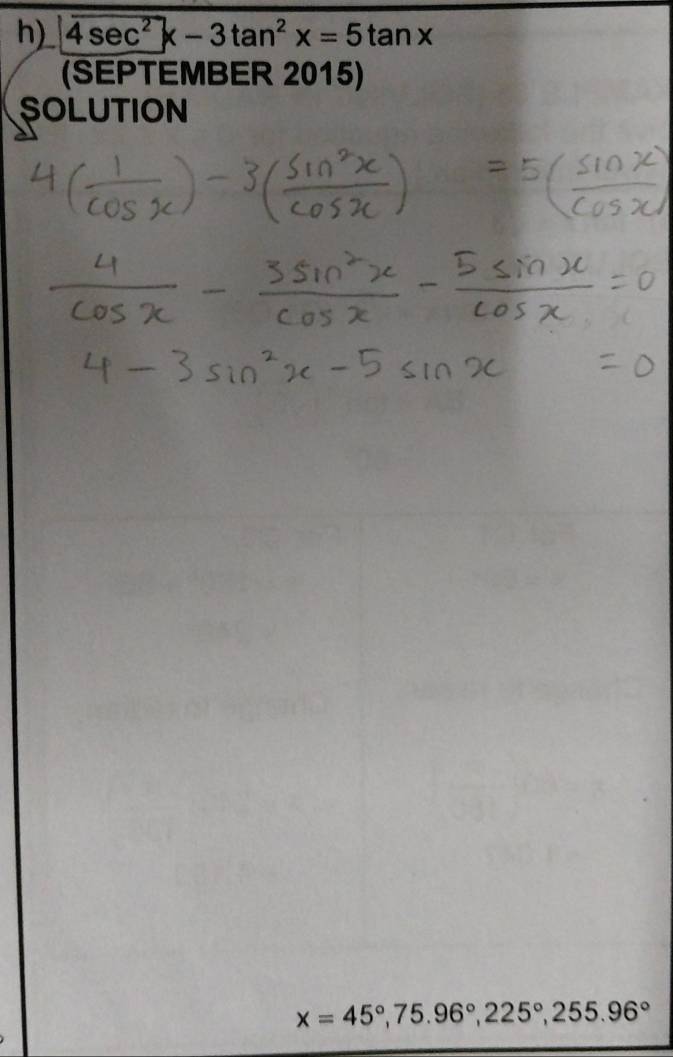 h) 4 sec² x − 3 tan² x = 5 tan x
(SEPTEMBER 2015)
SOLUTION
4(1/cos x) − 3(sin²x/cos x) = 5(sin x/cos x)
4/cos x − 3 sin²x/cos x − 5 sin x/cos x = 0
4 − 3 sin²x − 5 sin x = 0
x = 45°, 75.96°, 225°, 255.96°